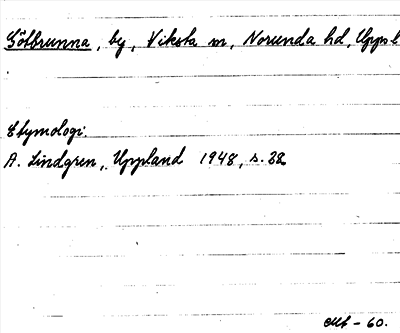 Götbrunna, by, Viksta sn, Norunda hd, Uppl
Etymologi.
A. Lindgren, Uppland 1948, s. 38